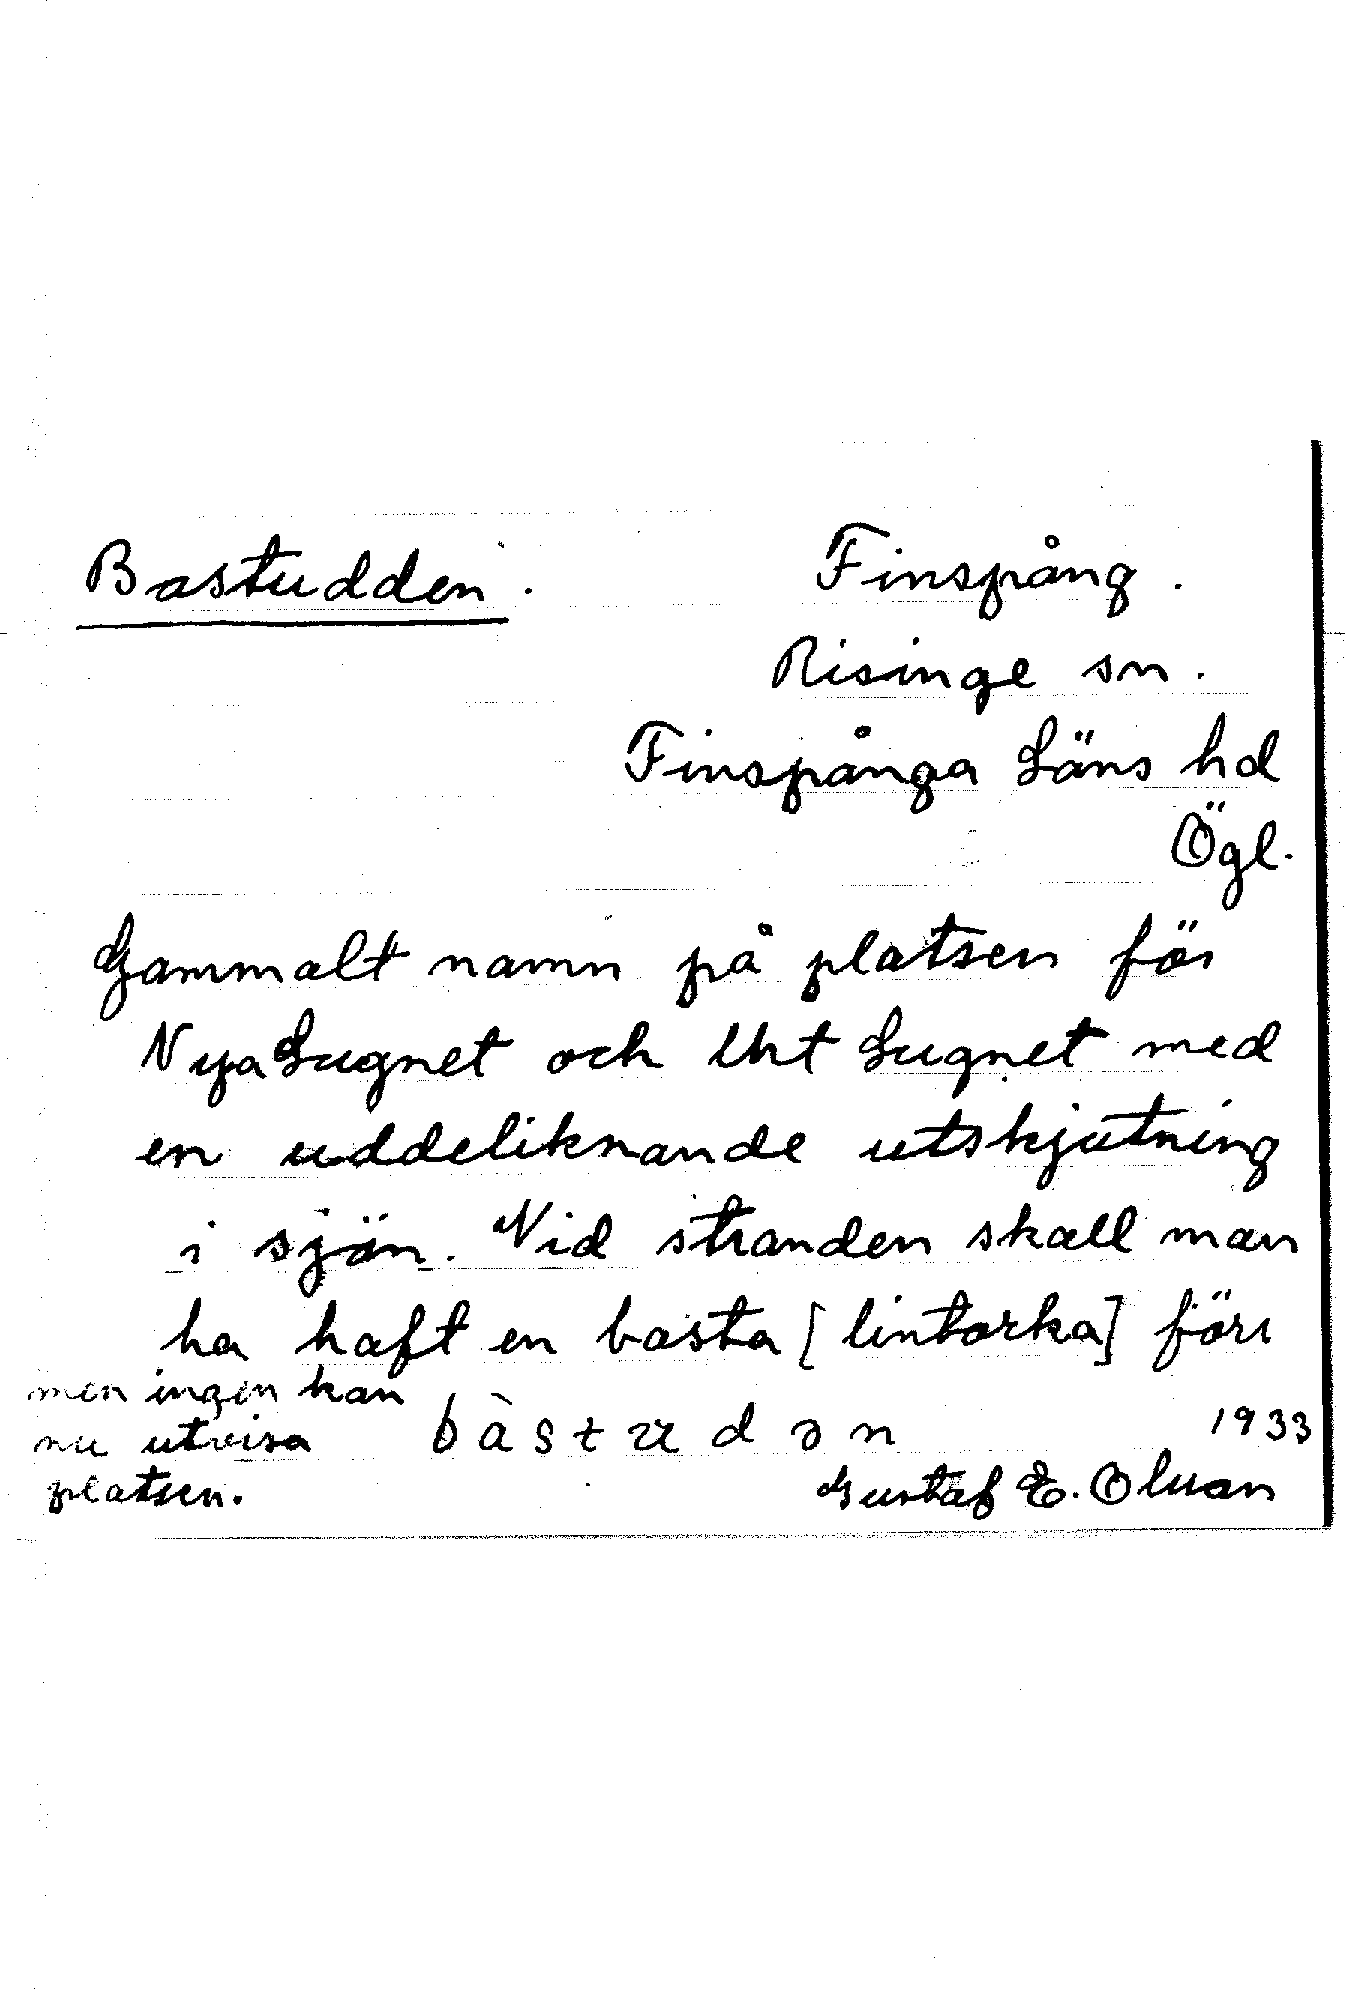 Bastudden.
Finspång.
Risinge sn.
Finspånga Läns hd
Ögl.
Gammalt namn på platsen för
Nya Lugnet och Lugnet med
en uddeliknande utskjutning
i sjön. Vid stranden skall man
ha haft en basta [lintorka] förr
men ingen kan
nu utvisa
platsen.
bàstudən
1933
Gustaf E. Olsson